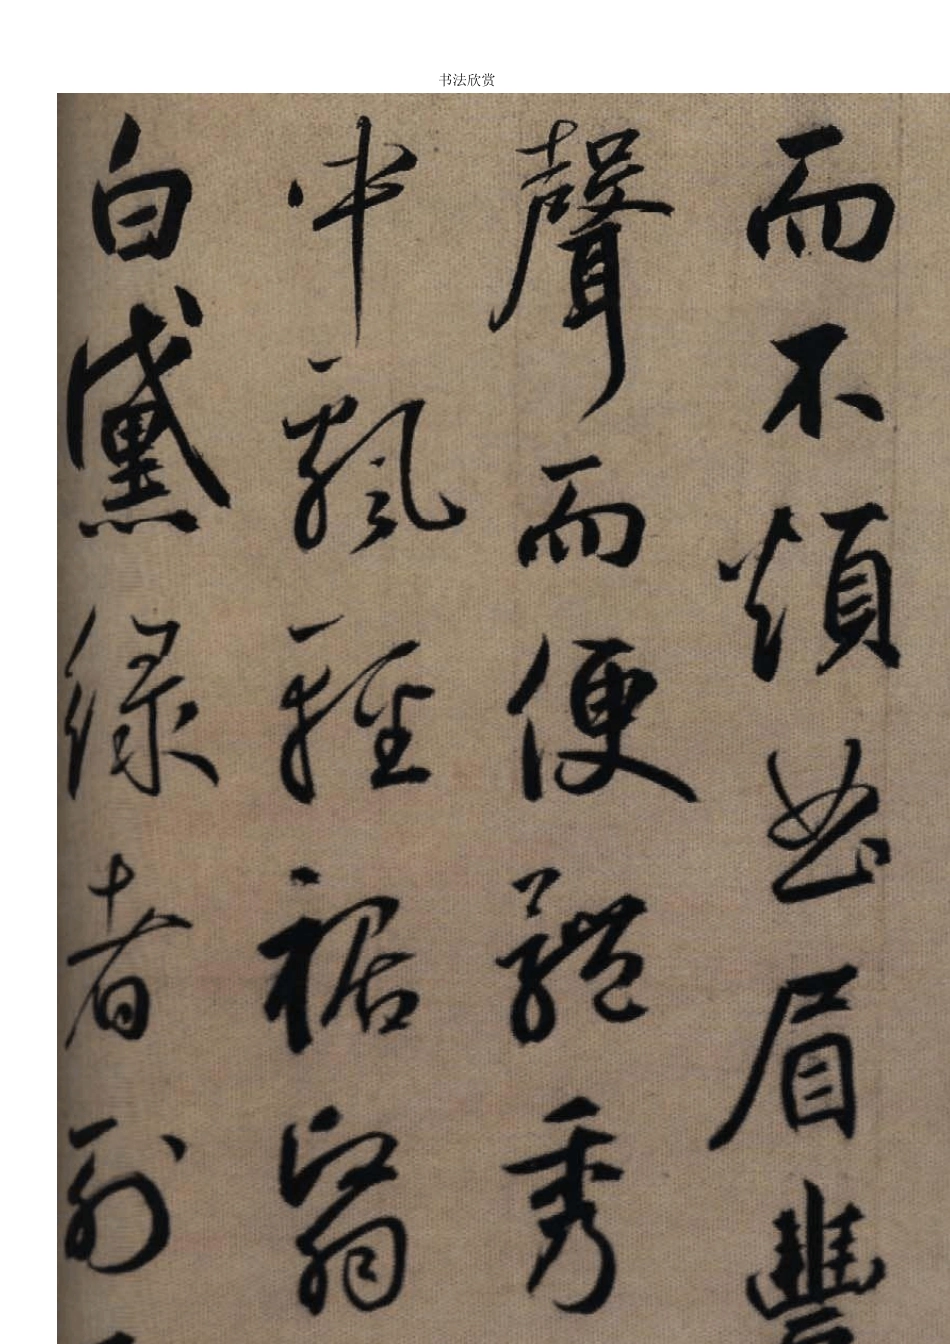 书法欣赏
而不煩曲眉豐
聲而便體秀
中飄輕裾翳
白黛綠者列